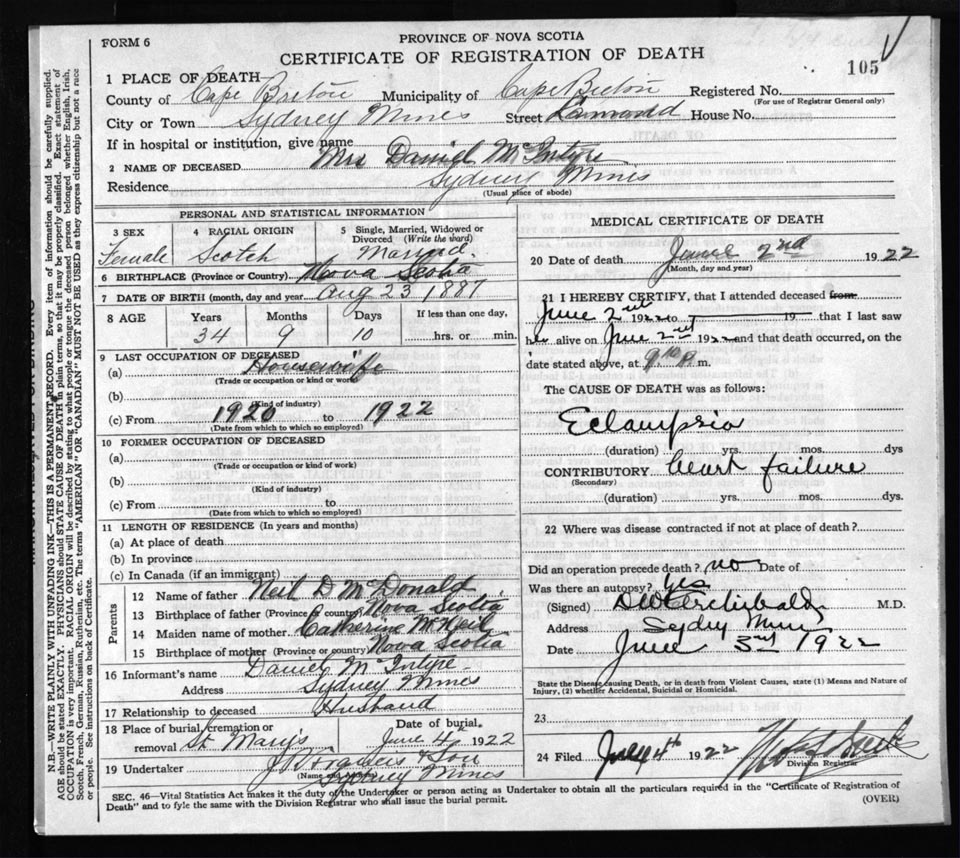 FORM 6
PROVINCE OF NOVA SCOTIA
CERTIFICATE OF REGISTRATION OF DEATH
105
1 PLACE OF DEATH—
County of Cape Breton Municipality of Cape Breton Registered No.
(For use of Registrar General only)
City or Town Sydney Mines Street House No.
If in hospital or institution, give name
2 NAME OF DECEASED Mrs Daniel McIntyre
Residence Sydney Mines
(Usual place of abode)
PERSONAL AND STATISTICAL INFORMATION
3 SEX Female
4 RACIAL ORIGIN Scotch
5 Single, Married, Widowed or Divorced (Write the word) Married.
6 BIRTHPLACE (Province or Country) Nova Scotia
7 DATE OF BIRTH (month, day and year) Aug 23 1887
8 AGE Years Months Days If less than one day,
34 9 10 hrs. or min.
9 LAST OCCUPATION OF DECEASED
(a) Housewife
(Trade or occupation or kind or work)
(b)
(Kind of industry)
(c) From 1920 to 1922
(Date from which to which so employed)
10 FORMER OCCUPATION OF DECEASED
(a)
(Trade or occupation or kind of work)
(b)
(Kind of industry)
(c) From to
(Date from which to which so employed)
11 LENGTH OF RESIDENCE (In years and months)
(a) At place of death
(b) In province
(c) In Canada (if an immigrant)
Parents
12 Name of father Neil D McDonald
13 Birthplace of father (Province or country) Nova Scotia
14 Maiden name of mother Catherine McNeil
15 Birthplace of mother (Province or country) Nova Scotia
16 Informant's name Daniel McIntyre
Address Sydney Mines
17 Relationship to deceased Husband
18 Place of burial, cremation or removal St Mary's
Date of burial. June 4th 1922
19 Undertaker
(Name or
Sydney Mines
MEDICAL CERTIFICATE OF DEATH
20 Date of death June 2nd 1922
(Month, day and year)
21 I HEREBY CERTIFY, that I attended deceased from
June 2nd 1922 to 19 that I last saw
her alive on June 2nd 1922 and that death occurred, on the
date stated above, at 9 P.m.
The CAUSE OF DEATH was as follows:
Eclampsia
(duration) yrs. mos. dys
CONTRIBUTORY heart failure
(Secondary)
(duration) yrs. mos. dys.
22 Where was disease contracted if not at place of death?
Did an operation precede death? no Date of
Was there an autopsy? Yes
(Signed) Archibald M.D.
Address Sydney Mines
Date June 3rd 1922
State the Disease causing Death, or in death from Violent Causes, state (1) Means and Nature of
Injury, (2) whether Accidental, Suicidal or Homicidal.
23
24 Filed July 4th 1922
Division Registrar
SEC. 46—Vital Statistics Act makes it the duty of the Undertaker or person acting as Undertaker to obtain all the particulars required in the "Certificate of Registration of
Death" and to fyle the same with the Division Registrar who shall issue the burial permit.
(OVER)
N.B.—WRITE PLAINLY WITH UNFADING INK—THIS IS A PERMANENT RECORD. Every item of information should be carefully supplied.
AGE should be stated EXACTLY. PHYSICIANS should STATE CAUSE OF DEATH in plain terms, so that it may be properly classified. Exact statement of
OCCUPATION is very important. RACIAL ORIGIN will be described by stating to what people or tongue the deceased person belonged whether English, Irish,
Scotch, French, German, Russian, Ruthenian, etc. The terms "AMERICAN" OR "CANADIAN" MUST NOT BE USED as they express citizenship but not a race
or people. See instructions on back of Certificate.